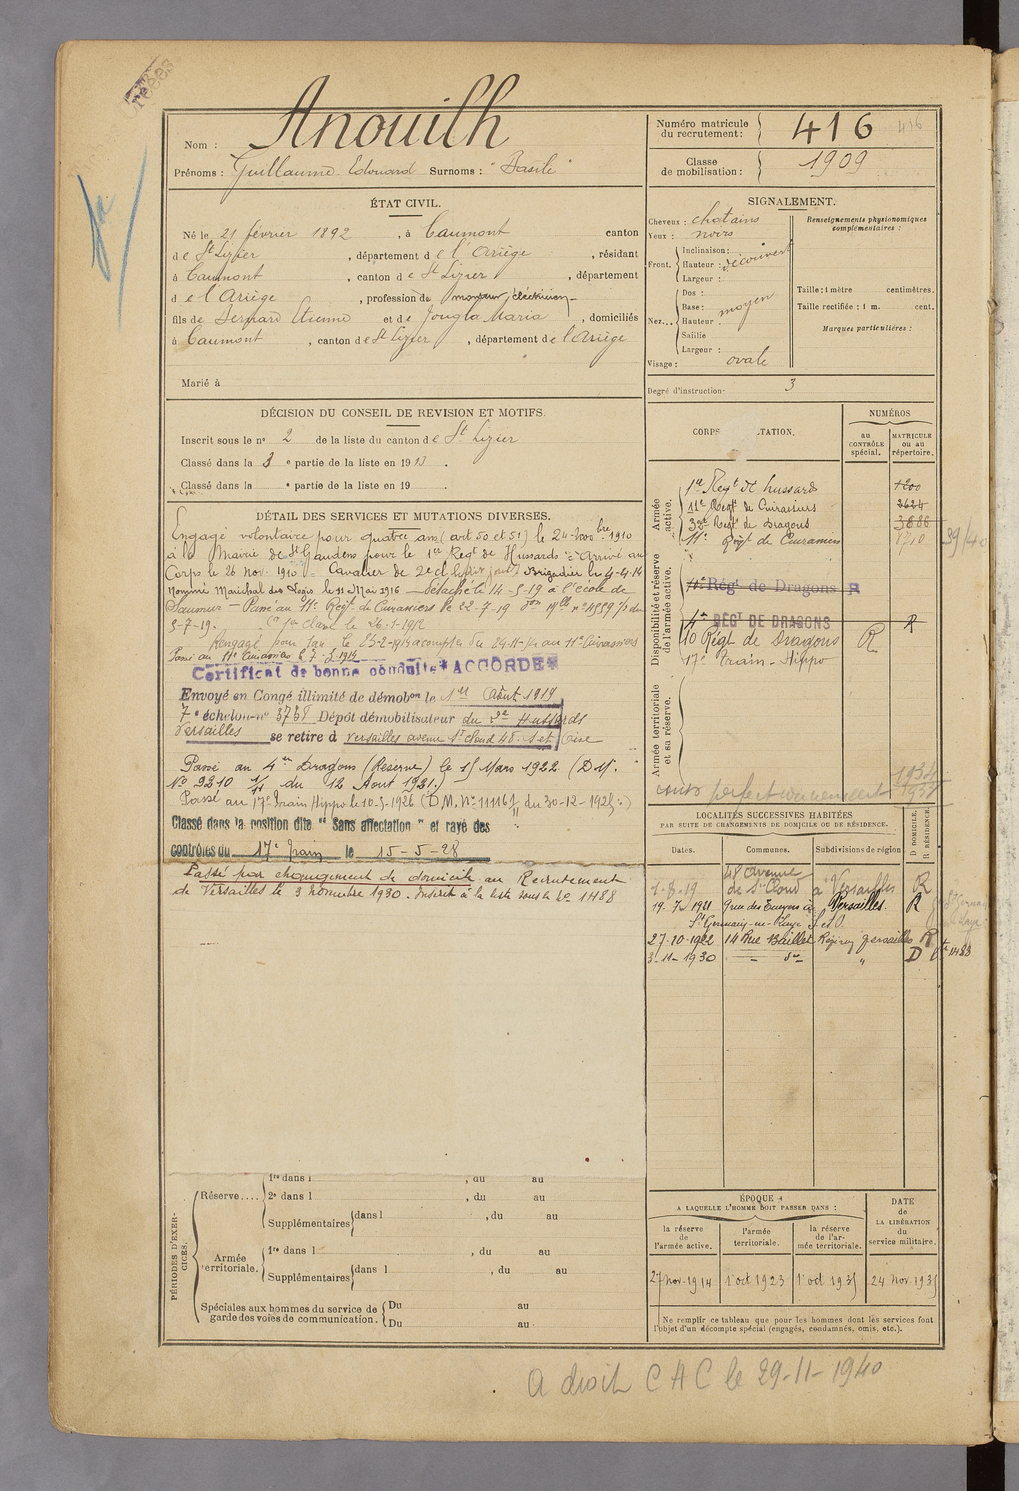 Nom : Anouilh
Prénoms : Guillaume Edouard Surnoms : "Basile"
Numéro matricule du recrutement : 416 416
Classe de mobilisation : 1909
ÉTAT CIVIL.
Né le 21 février 1892, à Caumont canton
de St Lizier, département de l'Ariège, résidant
à Caumont, canton de St Lizier, département
de l'Ariège, profession de monteur électricien
fils de Bernard Etienne et de Jougla Maria, domiciliés
à Caumont, canton de St Lizier, département de l'Ariège
Marié à
SIGNALEMENT.
Cheveux : chatains
Yeux : noirs
Front. Inclinaison :
Hauteur : découvert
Largeur :
Nez... Dos :
Base : moyen
Hauteur
Saillie
Largeur :
Visage : ovale
Renseignements physionomiques complémentaires :
Taille : 1 mètre centimètres.
Taille rectifiée : 1 m. cent.
Marques particulières :
Degré d'instruction : 3
DÉCISION DU CONSEIL DE REVISION ET MOTIFS.
Inscrit sous le no 2 de la liste du canton de St Lizier
Classé dans la 3e partie de la liste en 1913.
Classé dans la e partie de la liste en 19
DÉTAIL DES SERVICES ET MUTATIONS DIVERSES.
Engagé volontaire pour quatre ans (art 50 et 51) le 24 novbre 1910
à la Mairie de St Gaudens pour le 1er Regt de Hussards. Arrivé au
Corps le 26 Nov. 1910. Cavalier de 2e cl. Brigadier le 4-4-14
Nommé Maréchal des Logis le 11 Mai 1916 - Détaché le 14-5-19 à l'école de
Saumur - Passé au 11e Regt de Cuirassiers le 22-7-19
5-7-19. Cer 1re classe le 26-1-1912
Rengagé pour 1 an le 25-2-1914 à compter du 24-11-14 au 11e Cuirassiers
Passé au 11e Cuirassiers le 7-5-1914
Certificat de bonne conduite "ACCORDÉ"
Envoyé en Congé illimité de démobon le 1er Août 1919
7e échelon no 3758 Dépôt démobilisateur du Hussards
Versailles se retire à Versailles avenue St Cloud 48. S et Oise
Passé au 4e Dragons (Réserve) le 15 Mars 1922 (D.M.
No 9210 1/11 du 12 Aout 1921.)
Passé au 17e Train Hippo le 10-5-1926 (D.M. No 11116 du 30-12-1925.)
Classé dans la position dite "Sans affectation" et rayé des
contrôles du 17e Train le 15-5-28
Passé par changement de domicile au Recrutement
de Versailles le 3 novembre 1930. Inscrit à la liste sous le No 1488
CORPS TATION.
NUMÉROS
au CONTRÔLE spécial.
MATRICULE ou au répertoire.
Armée active.
1er Regt de hussards
11e Regt de Cuirassiers 2624
32e Regt de Dragons 3686
11e Regt de Cuirassiers 1710 39/40
Disponibilité et réserve de l'armée active.
4e Régt de Dragons R
4e RÉGT DE DRAGONS R
10 Régt de Dragons R
17e Train - Hippo
Armée territoriale et sa réserve.
cours perfectionnement 1934
1937
LOCALITÉS SUCCESSIVES HABITÉES
PAR SUITE DE CHANGEMENTS DE DOMICILE OU DE RÉSIDENCE.
Dates. Communes. Subdivisions de région D DOMICILE. R RÉSIDENCE.
1-8-19 48 avenue de St Cloud à Versailles R
19-7-1921 Versailles. R
St Germain-en-Laye S. et O.
27-10-1922 14 Rue Baillet Versailles R
3-11-1930 — do " D 1488
PÉRIODES D'EXERCICES.
Réserve.... 1re dans l , du au
2e dans l , du au
Supplémentaires dans l , du au
Armée territoriale. 1re dans l , du au
Supplémentaires dans l , du au
Spéciales aux hommes du service de garde des voies de communication. Du au
Du au
ÉPOQUE
A LAQUELLE L'HOMME DOIT PASSER DANS :
la réserve de l'armée active. l'armée territoriale. la réserve de l'armée territoriale.
DATE de LA LIBÉRATION du service militaire.
27 nov. 1914 1er oct 1923 1er oct 1935 24 Nov. 1935
Ne remplir ce tableau que pour les hommes dont les services font
l'objet d'un décompte spécial (engagés, condamnés, omis, etc.).
A droit C A C le 29-11-1940